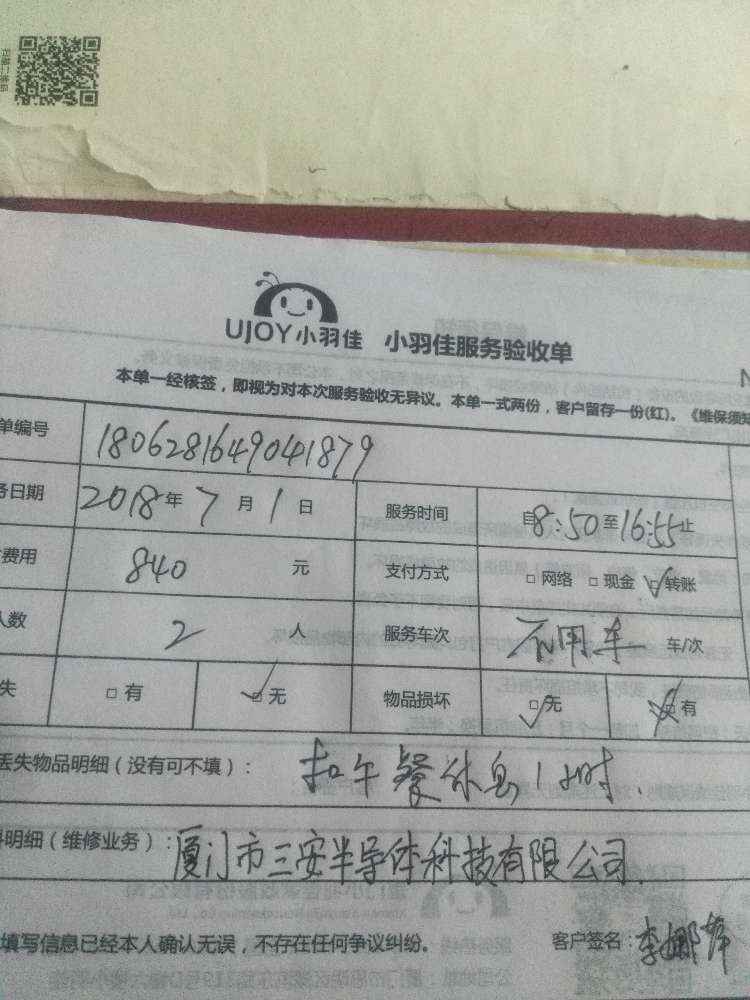 UJOY小羽佳 小羽佳服务验收单
本单一经核签，即视为对本次服务验收无异议。本单一式两份，客户留存一份(红)。《维保须知
单编号 1806281649041879
务日期 2018年7月1日 服务时间 自8:50至16:55止
费用 840 元 支付方式 □网络 □现金 □转账
人数 2 人 服务车次 不用车 车/次
失 □有 □无 物品损坏 □无 □有
丢失物品明细（没有可不填）： 扣午餐休息1小时.
料明细（维修业务）： 厦门市三安半导体科技有限公司.
填写信息已经本人确认无误，不存在任何争议纠纷。 客户签名：李娜